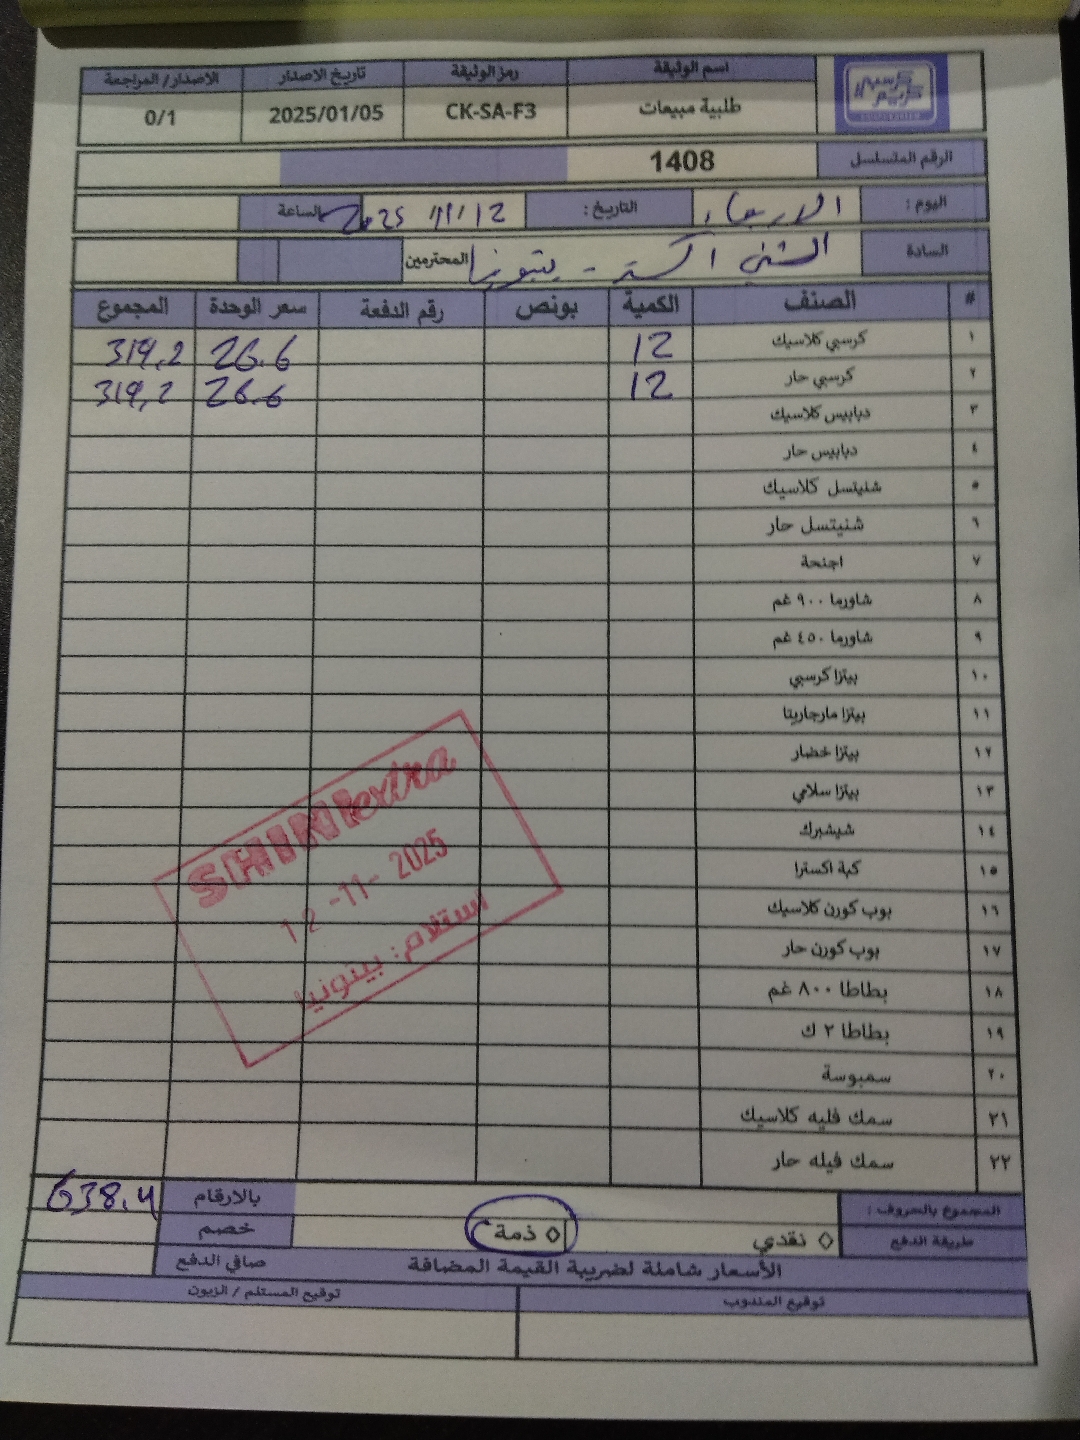 اسم الوثيقة رمز الوثيقة تاريخ الاصدار الاصدار/ المراجعة
طلبية مبيعات CK-SA-F3 2025/01/05 0/1
الرقم المتسلسل 1408
اليوم : الاربعاء التاريخ : 2025/11/12 الساعة
السادة الشني اكسترا - بيتونيا المحترمين
# الصنف الكمية بونص رقم الدفعة سعر الوحدة المجموع
١ كرسبي كلاسيك 12 26.6 319,2
٢ كرسبي حار 12 26.6 319,2
٣ دبابيس كلاسيك
٤ دبابيس حار
٥ شنيتسل كلاسيك
٦ شنيتسل حار
٧ اجنحة
٨ شاورما ٩٠٠ غم
٩ شاورما ٤٥٠ غم
١٠ بيتزا كرسبي
١١ بيتزا مارجاريتا
١٢ بيتزا خضار
١٣ بيتزا سلامي
١٤ شيشبرك
١٥ كبة اكسترا
١٦ بوب كورن كلاسيك
١٧ بوب كورن حار
١٨ بطاطا ٨٠٠ غم
١٩ بطاطا ٢ ك
٢٠ سمبوسة
٢١ سمك فليه كلاسيك
٢٢ سمك فيله حار
SHINI extra
12 -11- 2025
استلام: بيتونيا
المجموع بالحروف : بالارقام 638.4
طريقة الدفع ◊ نقدي ◊ ذمة خصم
الأسعار شاملة لضريبة القيمة المضافة صافي الدفع
توقيع المندوب توقيع المستلم / الزبون